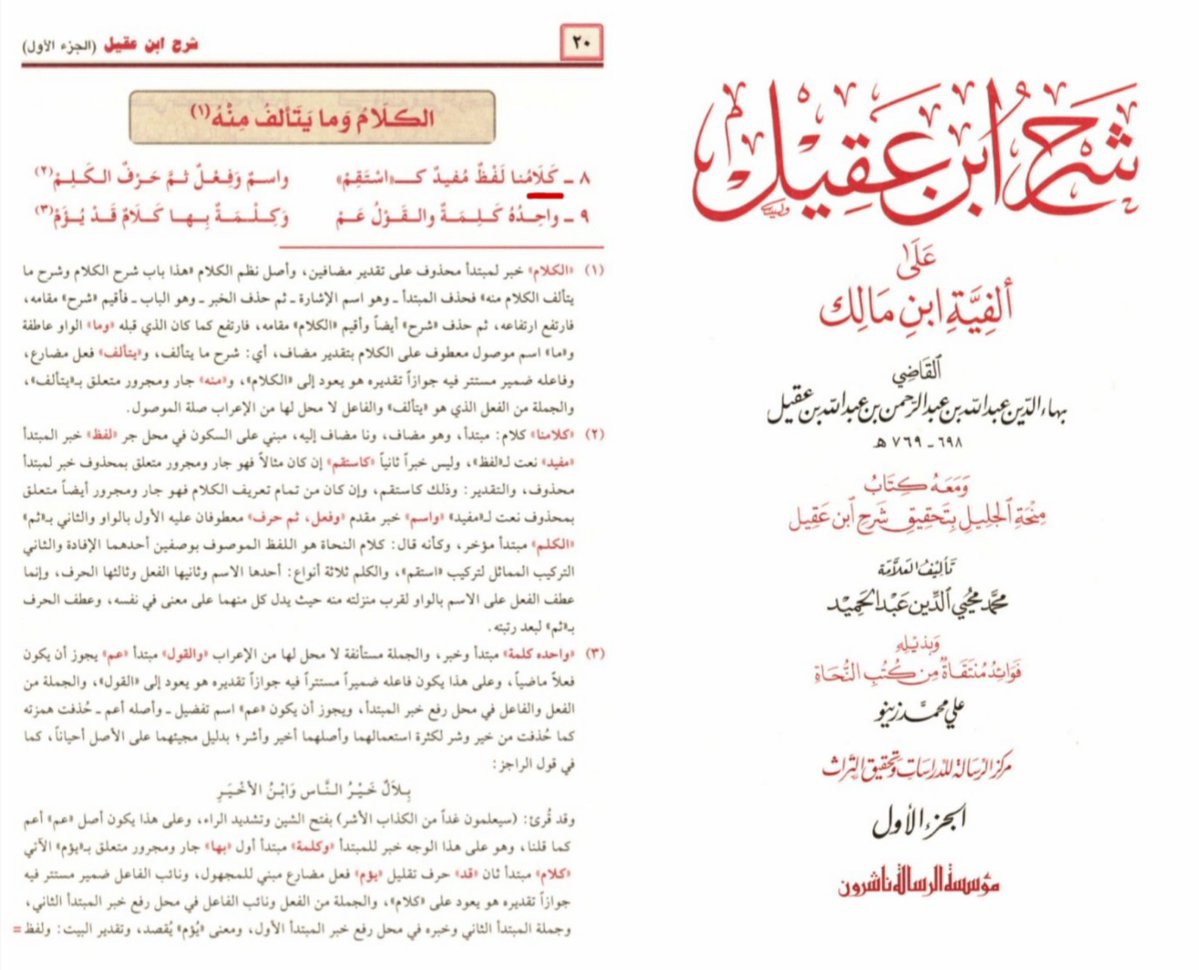 شَرْحُ ابْنِ عَقِيل
عَلَى
ألفِيَّةِ ابنِ مَالِك
القَاضِي
بهاء الدّين عبد الله بن عبد الرّحمن بن عبد الله بن عقيل
٦٩٨ - ٧٦٩ هـ
وَمَعَهُ كِتَابُ
مِنْحَةِ الجَلِيل بِتَحقِيق شَرحِ ابن عَقِيل
تَأليفُ العَلَّامَة
محمَّد محيي الدِّين عَبد الحَمِيد
وَبذَيلِهِ
فَوائِد مُنتَقَاةٌ مِن كُتُبِ النُّحَاةِ
علي محمَّد زينو
مركز الرسالة للدراسات وتحقيق التراث
الجزء الأول
مؤسسة الرسالة ناشرون
٢٠
شرح ابن عقيل (الجزء الأول)
الكلَامُ وَما يَتَألفُ مِنْهُ(١)
٨ ـ كَلَامُنا لَفْظٌ مُفيدٌ كــ«اسْتَقِمْ» واسمٌ وَفِعْلٌ ثمَّ حَرْفٌ الكَلِمْ(٢)
٩ ـ واحِدُهُ كَلِمَةٌ والقَوْلُ عَمْ وَكِلْمَةٌ بِها كَلَامٌ قَدْ يُؤَمْ(٣)
(١) «الكلام» خبر لمبتدأ محذوف على تقدير مضافين، وأصل نظم الكلام «هذا باب شرح الكلام وشرح ما
يتألف الكلام منه» فحذف المبتدأ ـ وهو اسم الإشارة ـ ثم حذف الخبر ـ وهو الباب ـ فأقيم «شرح» مقامه،
فارتفع ارتفاعه، ثم حذف «شرح» أيضاً وأقيم «الكلام» مقامه، فارتفع كما كان الذي قبله «وما» الواو عاطفة
و«ما» اسم موصول معطوف على الكلام بتقدير مضاف، أي: شرح ما يتألف، و«يتألف» فعل مضارع،
وفاعله ضمير مستتر فيه جوازاً تقديره هو يعود إلى «الكلام»، و«منه» جار ومجرور متعلق بـ«يتألف»،
والجملة من الفعل الذي هو «يتألف» والفاعل لا محل لها من الإعراب صلة الموصول.
(٢) «كلامنا» كلام: مبتدأ، وهو مضاف، ونا مضاف إليه، مبني على السكون في محل جر «لفظ» خبر المبتدأ
«مفيد» نعت لـ«لفظ»، وليس خبراً ثانياً «كاستقم» إن كان مثالاً فهو جار ومجرور متعلق بمحذوف خبر لمبتدأ
محذوف، والتقدير: وذلك كاستقم، وإن كان من تمام تعريف الكلام فهو جار ومجرور أيضاً متعلق
بمحذوف نعت لـ«مفيد» «واسم» خبر مقدم «وفعل، ثم حرف» معطوفان عليه الأول بالواو والثاني بـ«ثم»
«الكلم» مبتدأ مؤخر، وكأنه قال: كلام النحاة هو اللفظ الموصوف بوصفين أحدهما الإفادة والثاني
التركيب المماثل لتركيب «استقم»، والكلم ثلاثة أنواع: أحدها الاسم وثانيها الفعل وثالثها الحرف، وإنما
عطف الفعل على الاسم بالواو لقرب منزلته منه حيث يدل كل منهما على معنى في نفسه، وعطف الحرف
بـ«ثم» لبعد رتبته.
(٣) «واحده كلمة» مبتدأ وخبر، والجملة مستأنفة لا محل لها من الإعراب «والقول» مبتدأ «عم» يجوز أن يكون
فعلاً ماضياً، وعلى هذا يكون فاعله ضميراً مستتراً فيه جوازاً تقديره هو يعود إلى «القول»، والجملة من
الفعل والفاعل في محل رفع خبر المبتدأ، ويجوز أن يكون «عم» اسم تفضيل ـ وأصله أعم ـ حُذفت همزته
كما حُذفت من خير وشر لكثرة استعمالهما وأصلهما أخير وأشر؛ بدليل مجيئهما على الأصل أحياناً، كما
في قول الراجز:
بِلَالٌ خَيْرُ النَّاس وَابْنُ الأخْيَرِ
وقد قُرئ: (سيعلمون غداً من الكذاب الأشر) بفتح الشين وتشديد الراء، وعلى هذا يكون أصل «عم» أعم
كما قلنا، وهو على هذا الوجه خبر للمبتدأ «وكلمة» مبتدأ أول «بها» جار ومجرور متعلق بـ«يؤم» الآتي
«كلام» مبتدأ ثان «قد» حرف تقليل «يؤم» فعل مضارع مبني للمجهول، ونائب الفاعل ضمير مستتر فيه
جوازاً تقديره هو يعود على «كلام»، والجملة من الفعل ونائب الفاعل في محل رفع خبر المبتدأ الثاني،
وجملة المبتدأ الثاني وخبره في محل رفع خبر المبتدأ الأول، ومعنى «يُؤم» يُقصد، وتقدير البيت: ولفظ =